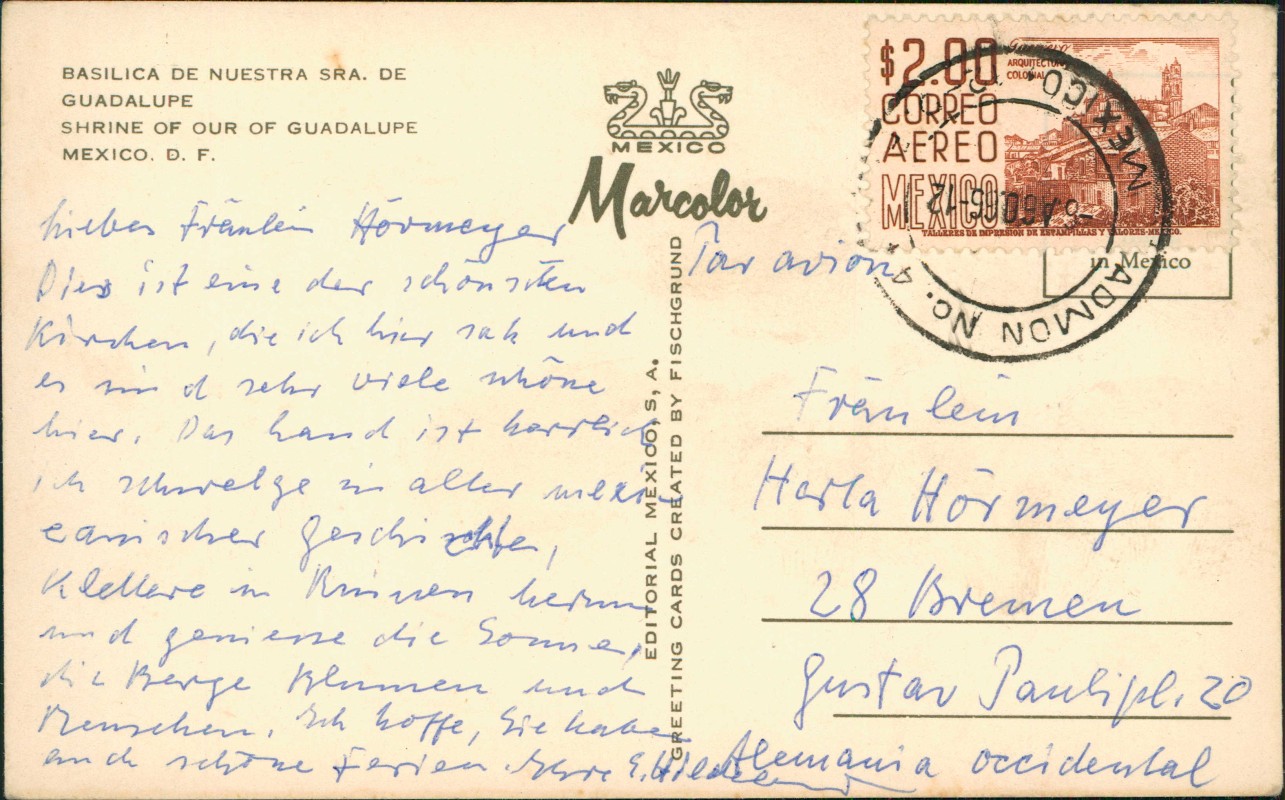 BASILICA DE NUESTRA SRA. DE
GUADALUPE
SHRINE OF OUR OF GUADALUPE
MEXICO. D. F.
Liebes Fräulein Hörmeyer
Dies ist eine der schönsten
Kirchen, die ich hier sah und
es sind sehr viele schöne
hier. Das Land ist herrlich
ich schwelge in alter mexi-
canischer Geschichte,
klettere in Ruinen herum
und geniesse die Sonne,
die Berge Blumen und
Menschen. Ich hoffe, Sie haben
auch schöne Ferien. Ihre E.
MEXICO
Marcolor
EDITORIAL MEXICO, S, A.
GREETING CARDS CREATED BY FISCHGRUND
Par avion
$2.00
CORREO
AEREO
MEXICO
ARQUITECTURA
COLONIAL
TALLERES DE IMPRESION DE ESTAMPILLAS Y VALORES-MEXICO.
in Mexico
MEXICO
ADMON No. 4
Fräulein
Herta Hörmeyer
28 Bremen
Gustav Paulipl. 20
Alemania occidental